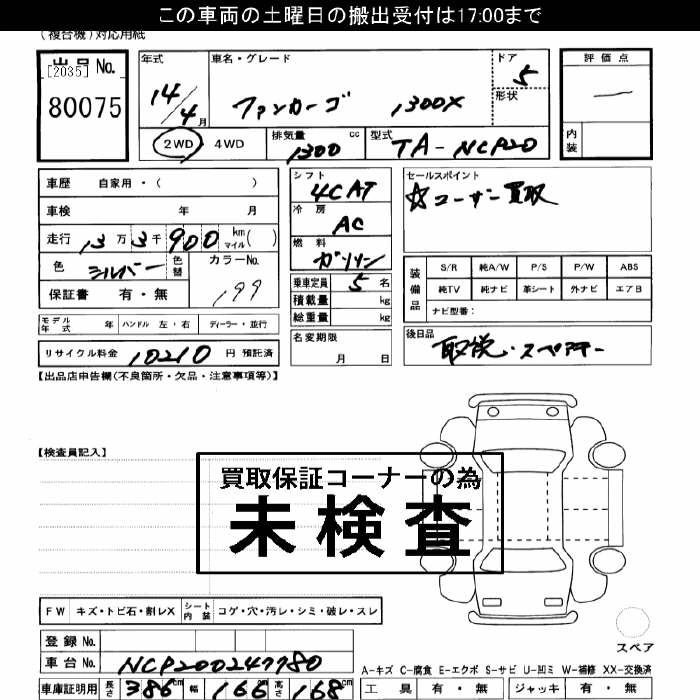 この車両の土曜日の搬出受付は17:00まで
(複合機)対応用紙
出品 No.
[2035]
80075
年式
14/4月
車名・グレード
ファンカーゴ 1300X
ドア
5
形状
評価点
内装
2WD 4WD
排気量 cc
1300
型式
TA-NCP20
車歴 自家用・( )
車検 年 月
走行 13万3千900 kmマイル( )
色 シルバー 色替 カラーNo. 199
保証書 有・無
シフト
4CAT
冷房
AC
燃料
ガソリン
乗車定員 5 名
積載量 kg
総重量 kg
セールスポイント
☆コーナー買取
装備品
S/R 純A/W P/S P/W ABS
純TV 純ナビ 革シート 外ナビ エアB
ナビ型番:
モデル年式 年 ハンドル 左・右 ディーラー・並行
リサイクル料金 10210 円 預託済
名変期限
月 日
後日品
取説・スペアキー
【出品店申告欄(不良箇所・欠品・注意事項等)】
【検査員記入】
買取保証コーナーの為
未検査
FW キズ・トビ石・割レX シート内装 コゲ・穴・汚レ・シミ・破レ・スレ
スペア
登録 No.
車台 No. NCP200247780
A-キズ C-腐食 E-エクボ S-サビ U-凹ミ W-補修 XX-交換済
車庫証明用 長さ 386cm 幅 166cm 高さ 168cm
工具 有・無 ジャッキ 有・無